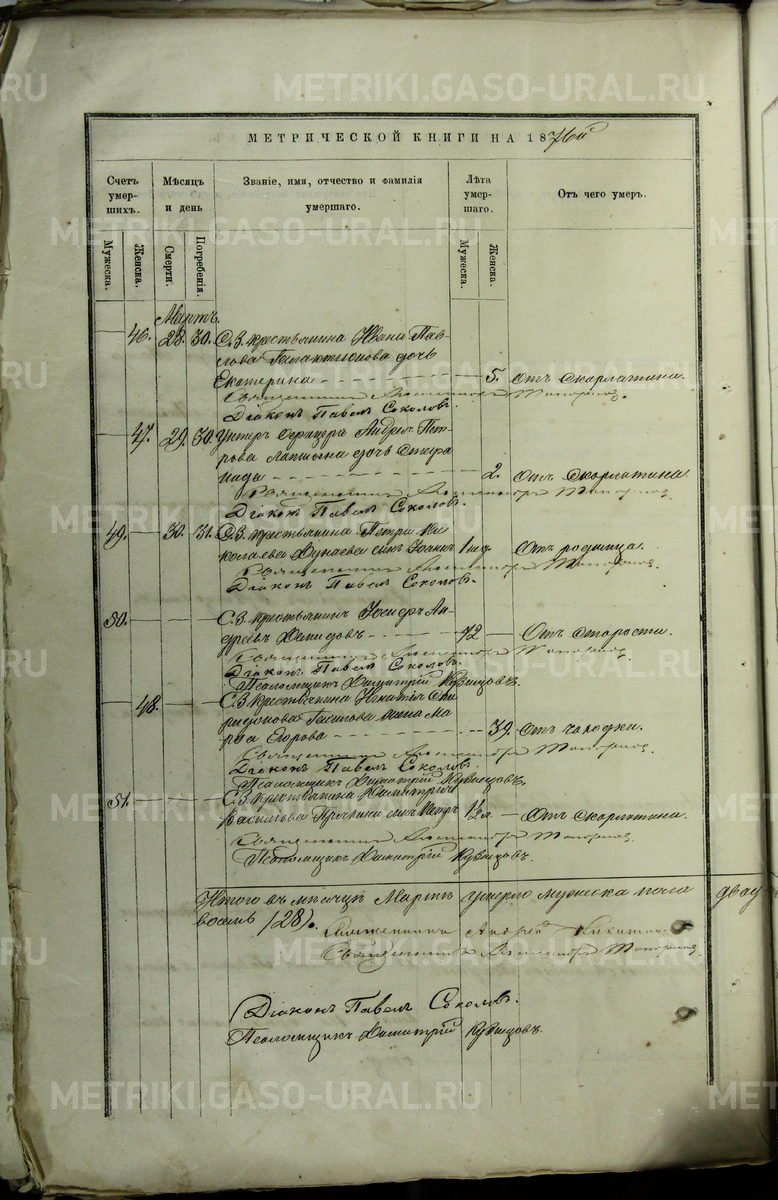 METRIKI.GASO-URAL.RU
МЕТРИЧЕСКОЙ КНИГИ НА 1876ой
Счетъ умер-шихъ.
Мѣсяцъ и день
Званіе, имя, отчество и фамилія умершаго.
Лѣта умер-шаго.
Отъ чего умеръ.
Мужеска.
Женска.
Смерти.
Погребенія.
Мужеска.
Женска.
Мартъ.
46. 28. 30. С.З. крестьянина Ивана Пав-
лова Галактионова дочь
Екатерина 5. Отъ скарлатина.
Священникъ Александръ Топорковъ.
Діаконъ Павелъ Соколовъ.
47. 29. 30. Унтеръ офицера Андрея Пет-
рова дочь
2. Отъ скарлатина.
Священникъ Александръ Топорковъ.
Діаконъ Павелъ Соколовъ.
49. 30. 31. С.З. крестьянина Петра Ни-
колаева Дунаева сынъ Отъ родимца.
Священникъ Александръ Топорковъ.
Діаконъ Павелъ Соколовъ.
50. С.З. крестьянинъ Іосифъ Ан-
дреевъ 72 Отъ старости.
Священникъ Александръ Топорковъ.
Діаконъ Павелъ Соколовъ.
Псаломщикъ Димитрій
48. С.З. крестьянина Игнатія Спи-
ридонова жена Ма-
рѳа Егорова 39. Отъ чахотки.
Священникъ Александръ Топорковъ.
Діаконъ Павелъ Соколовъ.
Псаломщикъ Димитрій
51. С.З. крестьянина Димитрія
сынъ Петръ 1½ л. Отъ скарлатина.
Священникъ Александръ Топорковъ.
Псаломщикъ Димитрій
Итого въ мѣсяцѣ Мартѣ умерло мужеска пола двад
восемь (28).
Священникъ Андрей
Священникъ Александръ Топорковъ.
Діаконъ Павелъ Соколовъ.
Псаломщикъ Димитрій